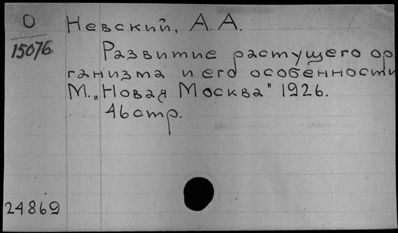 О
15076
Невский, А. А.
Развитие растущего ор
ганизма и его особенности
М. „Новая Москва" 1926.
46стр.
24869